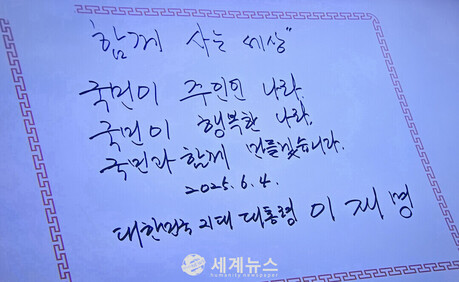 "함께 사는 세상"
국민이 주인인 나라,
국민이 행복한 나라,
국민과 함께 만들겠습니다.
2025. 6. 4.
대한민국 21대 대통령 이재명
세계뉴스
humanity newspaper